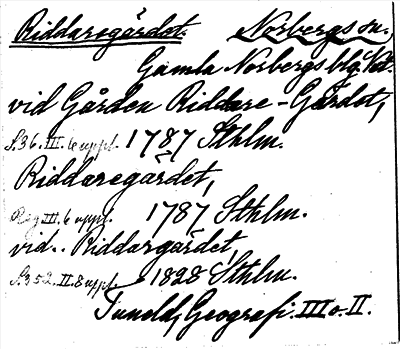 Riddaregärdet. Norbergs sn.,
Gamla Norbergs blg. Vstm.
vid Gården Riddare-Gärdet,
S.36. III. 6 uppl. 1787 Sthlm.
Riddaregärdet,
Reg III. 6 uppl. 1787 Sthlm.
vid.. Riddargärdet,
S.352. II. 8 uppl. 1828 Sthlm.
Tuneld, Geografi. III o. II.